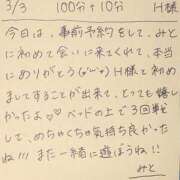 3/3 100分+10分 H様
今日は、事前予約をして、みと
に初めて会いに来てくれて、本当
にありがとう(๑′ᴗ‵๑)♡ H様と初め
ましてすることが出来て、とっても嬉し
かったよ♡♡ ベッドの上で3回戦
して、めちゃくちゃ気持ち良かった
ね!!! また一緒に遊ぼうね!!
みと